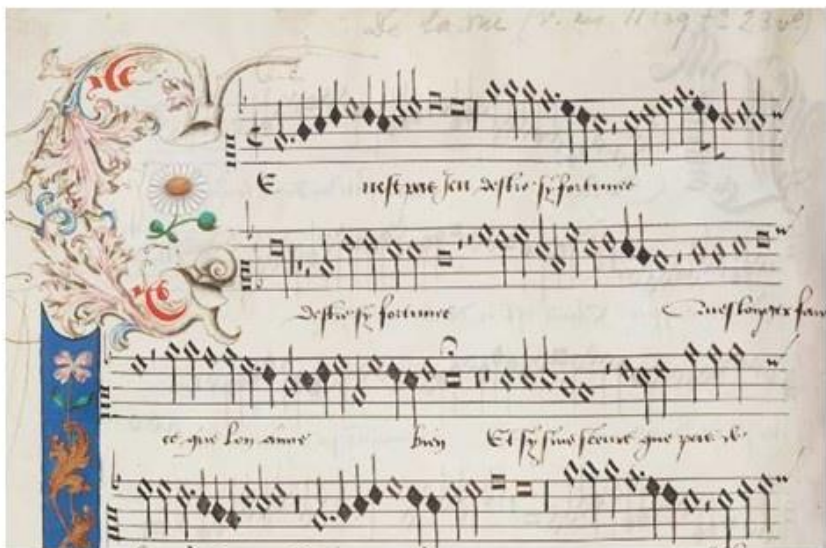 De la Rue (v. ms 11239 f° 23 v°)
CE nest pas Jeu destre sy fortunee
destre sy fortunee Quesloigner fau
ce que lon aime bien Et sy suis seure que pas